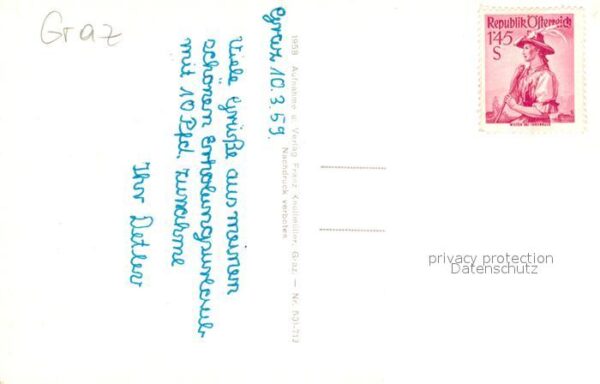 Graz
Graz, 10.3.59.
Viele Grüße aus meinem
schönen Erholungsurlaub
mit 10 Pfd. Zunahme
Ihr Detlev
1958 Aufnahme u. Verlag Franz Knollmüller, Graz. — Nr. 501-713
Nachdruck verboten
Republik Österreich
1'45
S
privacy protection
Datenschutz